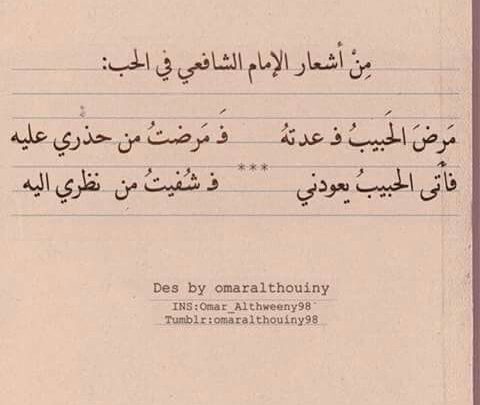 مِنْ أشعار الإمام الشافعي في الحب:
مَرِضَ الحَبيبُ فـ عدتهُ فَـ مَرضتُ من حذري عليه
***
فأتى الحبيبُ يعودني فـ شُفيتُ مِن نظري اليه
Des by omaralthouiny
INS:Omar_Althweeny98
Tumblr:omaralthouiny98